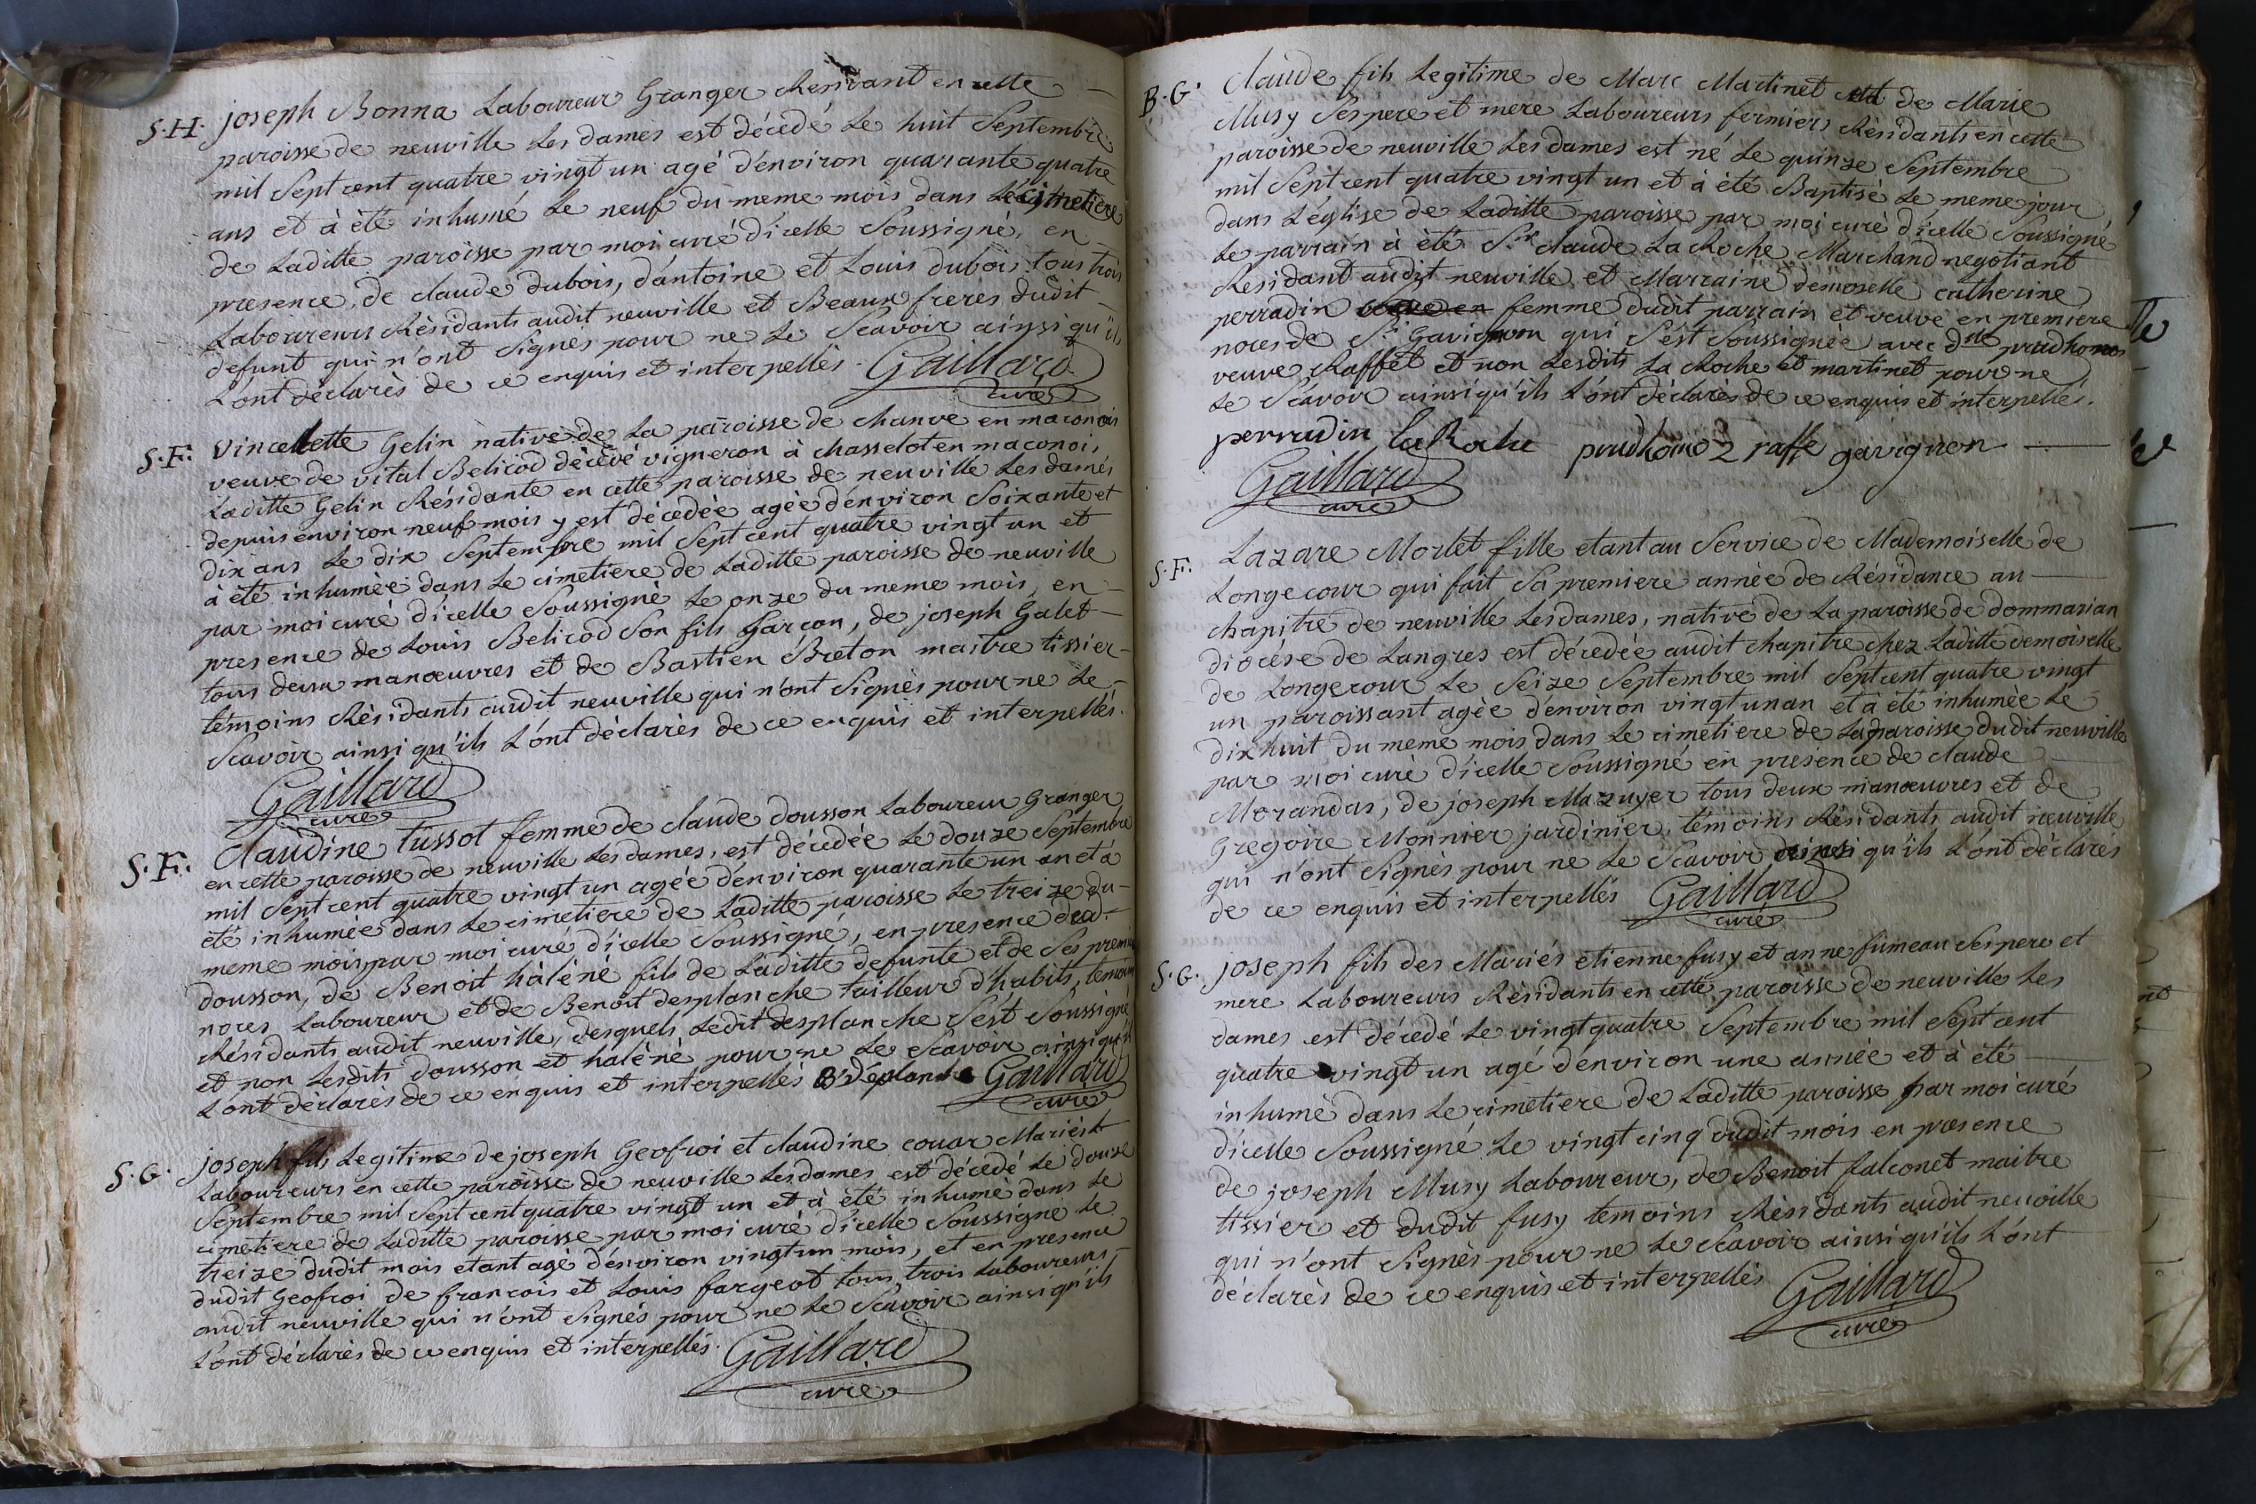 S.H. joseph Bonna Laboureur Granger Residant en cette
paroisse de neuville Les dames est décedé Le huit Septembre
mil Sept cent quatre vingt un agé d'environ quarante quatre
ans et à été inhumé Le neuf du meme mois dans Le cimetiere
de Laditte paroisse par moi curé d'icelle Soussigné, en
presence, de claude dubois, d'antoine et Louis dubois, tous trois
Laboureurs Résidants audit neuville et Beaux freres dudit
defunt qui n'ont signés pour ne Le Scavoir ainsi qu'ils
L'ont déclarés de ce enquis et interpellés. Gaillard
curé
S.F. Vincelette Gelin native de La paroisse de chanve en maconois
veuve de vital Belicod décédé vigneron à chasselot en maconois,
Laditte Gelin Résidante en cette paroisse de neuville Les dames
depuis environ neuf mois y est décédée agée d'environ Soixante et
dix ans Le dix Septembre mil Sept cent quatre vingt un et
à été inhumée dans Le cimetiere de Laditte paroisse de neuville
par moi curé d'icelle Soussigné Le onze du meme mois, en
presence de Louis Belicod Son fils Garcon, de joseph Galet
tous deux manœuvres et de Bastien Breton maitre tissier
témoins Résidants audit neuville qui n'ont Signés pour ne Le
Scavoir ainsi qu'ils L'ont déclarés de ce enquis et interpellés.
Gaillard
curé
S.F. Claudine tussot femme de claude dousson Laboureur Granger
en cette paroisse de neuville Les dames, est décédée Le douze Septembre
mil Sept cent quatre vingt un agée d'environ quarante un an et à
été inhumée dans Le cimetiere de Laditte paroisse Le treize du
meme mois par moi curé d'icelle Soussigné, en presence dud.
dousson, de Benoit hàlèné fils de Laditte defunte et de Ses premieres
noces Laboureur et de Benoit desplanche tailleur d'habits, temoins
Résidants audit neuville, desquels Ledit desplanche S'est Soussigné
et non Lesdits dousson et hàlèné pour ne Le Scavoir ainsi qu'ils
L'ont déclarés de ce enquis et interpellés B Déplanche Gaillard
curé
S.G. joseph fils Legitime de joseph Geofroi et claudine couar Mariés
Laboureurs en cette paroisse de neuville Les dames est décedé Le douze
Septembre mil Sept cent quatre vingt un et à été inhumé dans Le
cimetiere de Laditte paroisse par moi curé d'icelle Soussigné Le
treize dudit mois etant agé d'environ vingt un mois, et en presence
dudit Geofroi de francois et Louis fargeot tous trois Laboureurs
audit neuville qui n'ont Signés pour ne Le Scavoir ainsi qu'ils
L'ont déclarés de ce enquis et interpellés. Gaillard
curé
B.G. Claude fils Legitime de Marc Martinet et de Marie
Musy Ses pere et mere Laboureurs fermiers Résidants en cette
paroisse de neuville Les dames est né Le quinze Septembre
mil Sept cent quatre vingt un et à été Baptisé Le meme jour
dans L'église de Laditte paroisse par moi curé d'icelle Soussigné
Le parrain à été S.r claude La Roche Marchand negotiant
Residant audit neuville et Marraine demoiselle catherine
perradin femme dudit parrain et veuve en premiere
noces de S.r Gavignon qui S'est Soussignée avec d.lle prudhomes
veuve Raffet et non Lesdits La Roche et martinet pour ne
Le Scavoir ainsi qu'ils L'ont déclarés de ce enquis et interpellés.
perradin La Roche prudhome 2 raffe gavignon
Gaillard
curé
S.F. Lazare Morlet fille etant au Service de Mademoiselle de
Longecour qui fait Sa premiere année de Résidance au
chapitre de neuville Les dames, native de La paroisse de dommarian
diocése de Langres est décédée audit chapitre chez Laditte demoiselle
de Longecour Le Seize Septembre mil Sept cent quatre vingt
un paroissant agée d'environ vingt un an et à été inhumée Le
dix huit du meme mois dans Le cimetiere de La paroisse dudit neuville
par moi curé d'icelle Soussigné en presence de claude
Morandas, de joseph Mazuyer tous deux manœuvres et de
Gregoire Monnier jardinier, témoins Résidants audit neuville
qui n'ont Signés pour ne Le Scavoir ainsi qu'ils L'ont déclarés
de ce enquis et interpellés Gaillard
curé
S.G. joseph fils des Mariés etienne fusy et anne fumeau Ses pere et
mere Laboureurs Résidants en cette paroisse de neuville Les
dames est décedé Le vingt quatre Septembre mil Sept cent
quatre vingt un agé d'environ une année et à été
inhumé dans Le cimetiere de Laditte paroisse par moi curé
d'icelle Soussigné Le vingt cinq dudit mois en presence
de joseph Musy Laboureur, de Benoit falconet maitre
tissier et dudit fusy temoins Résidants audit neuville
qui n'ont Signés pour ne Le Scavoir ainsi qu'ils L'ont
déclarés de ce enquis et interpellés Gaillard
curé